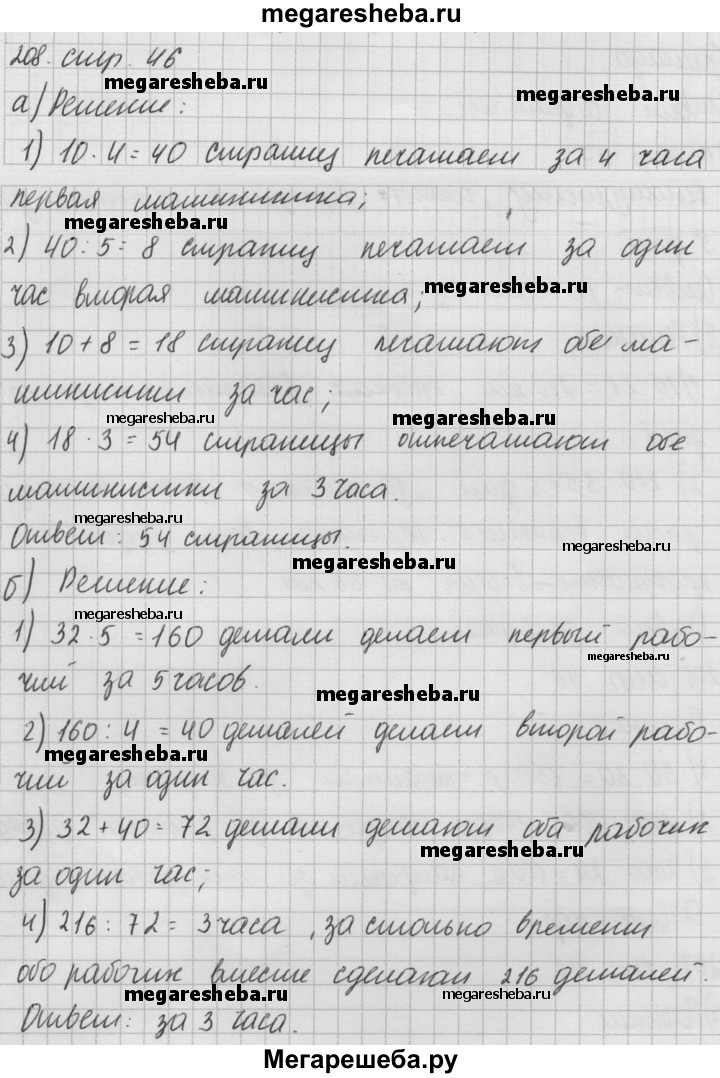 megaresheba.ru
208. стр. 46
megaresheba.ru
megaresheba.ru
а) Решение:
1) 10 · 4 = 40 страниц печатает за 4 часа
первая машинистка;
megaresheba.ru
2) 40 : 5 = 8 страниц печатает за один
час вторая машинистка;
megaresheba.ru
3) 10 + 8 = 18 страниц печатают обе ма-
шинистки за час;
megaresheba.ru
megaresheba.ru
4) 18 · 3 = 54 страницы отпечатают обе
машинистки за 3 часа.
megaresheba.ru
Ответ: 54 страницы.
megaresheba.ru
megaresheba.ru
б) Решение:
megaresheba.ru
1) 32 · 5 = 160 детали делает первый рабо-
megaresheba.ru
чий за 5 часов.
megaresheba.ru
2) 160 : 4 = 40 деталей делает второй рабо-
megaresheba.ru
чий за один час.
3) 32 + 40 = 72 детали делают оба рабочих
megaresheba.ru
за один час;
4) 216 : 72 = 3 часа, за столько времени
обо рабочих вместе сделают 216 деталей.
megaresheba.ru
megaresheba.ru
Ответ: за 3 часа.
Мегарешеба.ру